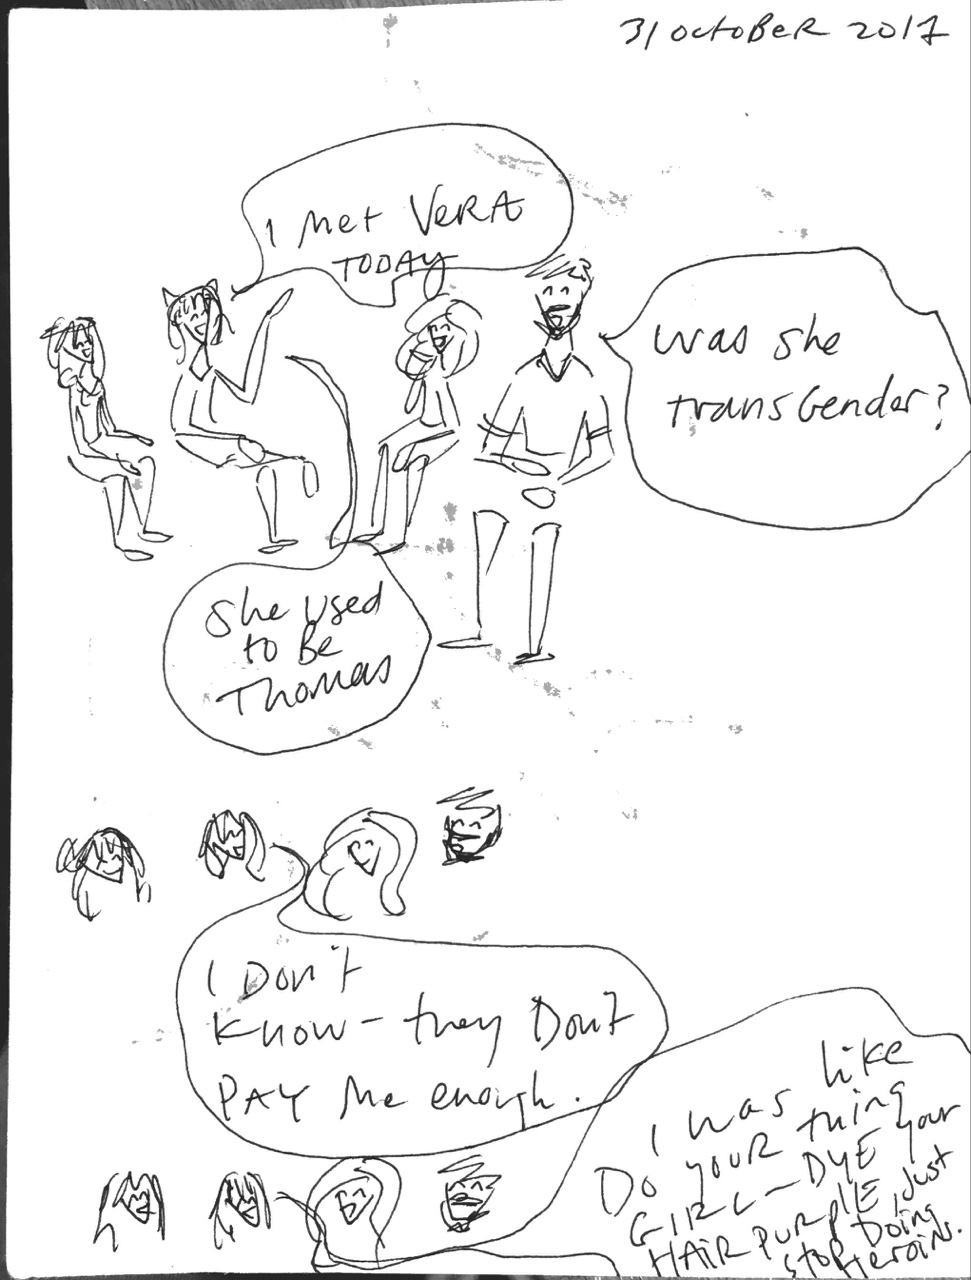 31 OCTOBER 2017
I Met VERA
TODAY
was she
transGender?
She used
to Be
Thomas
I Don't
Know - they Don't
PAY Me enough.
I was like
Do your thing
GIRL - DYE your
HAIR PURPLE, Just
stop Doing
Heroin.